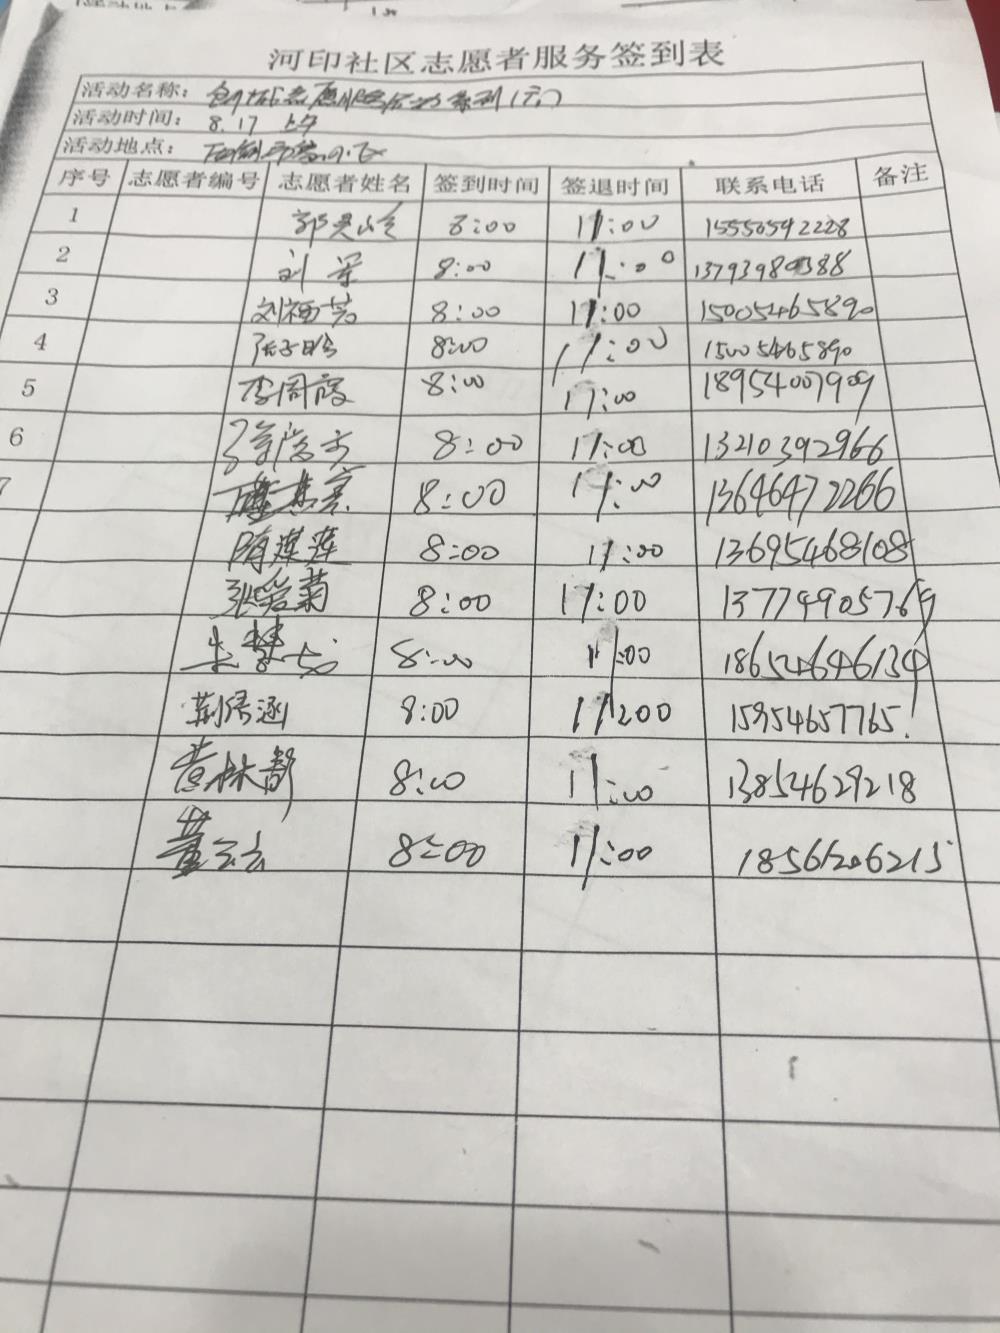 河印社区志愿者服务签到表
活动名称：
活动时间： 8.17 上午
活动地点：
序号 志愿者编号 志愿者姓名 签到时间 签退时间 联系电话 备注
1 郭灵岭 8:00 11:00 15550592228
2 刘军 8:00 11:00
3 刘福芸 8:00 11:00 15005465890
4 张子晗 8:00 11:00 15005465890
5 李周霞 8:00 11:00 18954007909
6 8:00 11:00 13210392966
7 8:00 11:00 13646472266
隋莲莲 8:00 11:00 13695468108
张爱菊 8:00 11:00 13774905769
8:00 11:00 18654646134
荆语涵 8:00 11:00 15954657765
黄林静 8:00 11:00 13854629218
董云云 8:00 11:00 18561206215